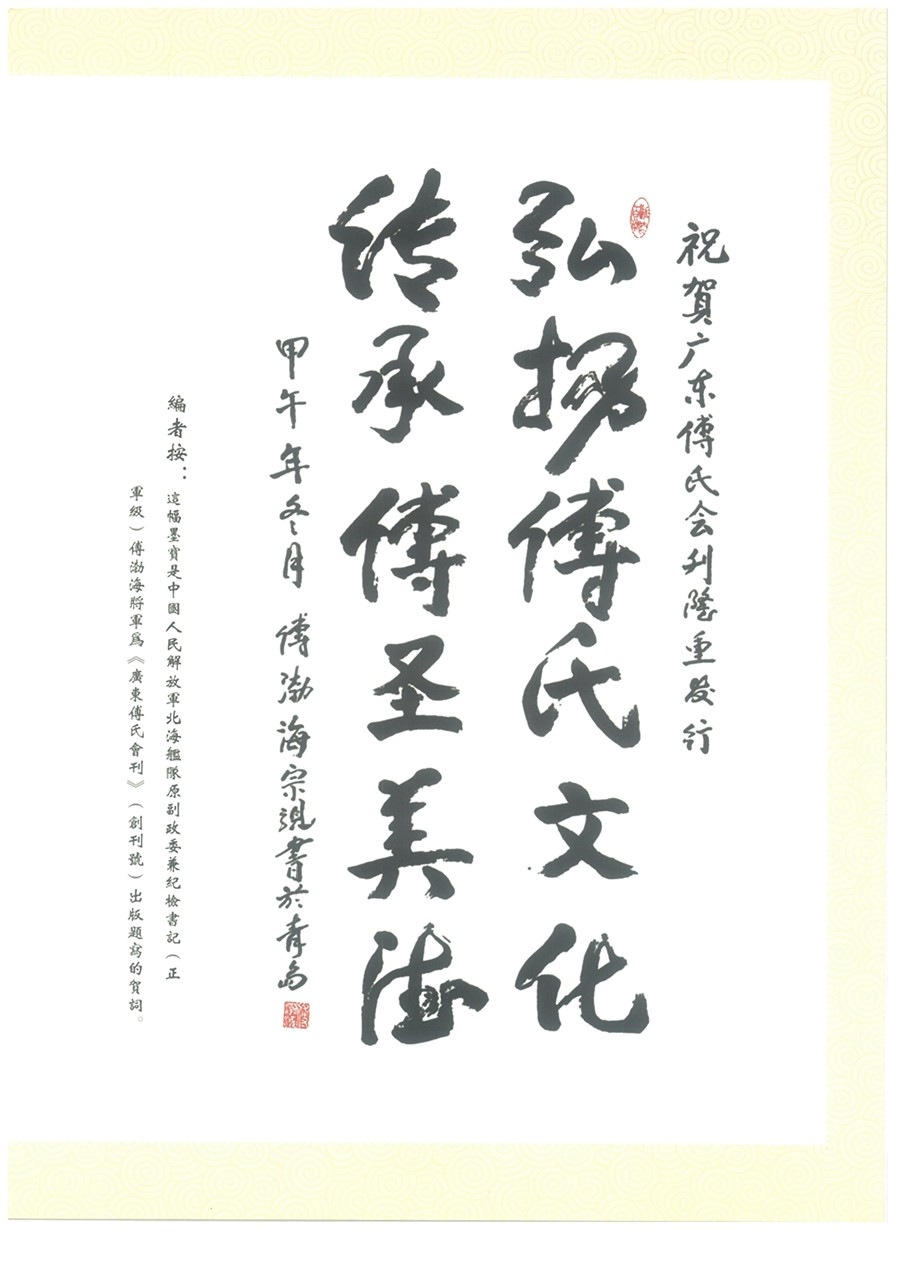 祝賀广东傅氏会刊隆重发行
弘扬傅氏文化
传承傅圣美德
甲午年冬月 傅渤海宗親書於青岛
編者按：這幅墨寶是中國人民解放軍北海艦隊原副政委兼紀檢書記（正
軍級）傅渤海將軍爲《廣東傅氏會刊》（創刊號）出版題寫的賀詞。